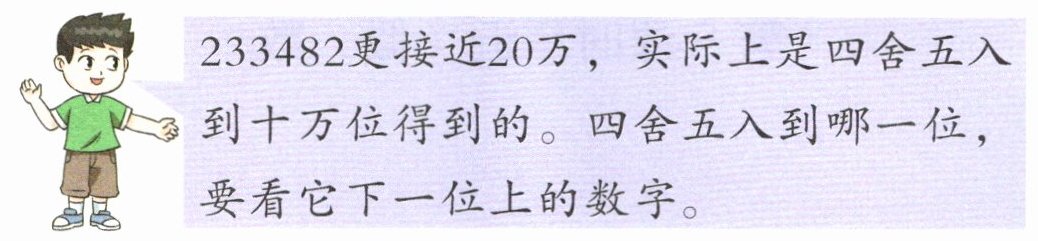 233482更接近20万，实际上是四舍五入
到十万位得到的。四舍五入到哪一位，
要看它下一位上的数字。